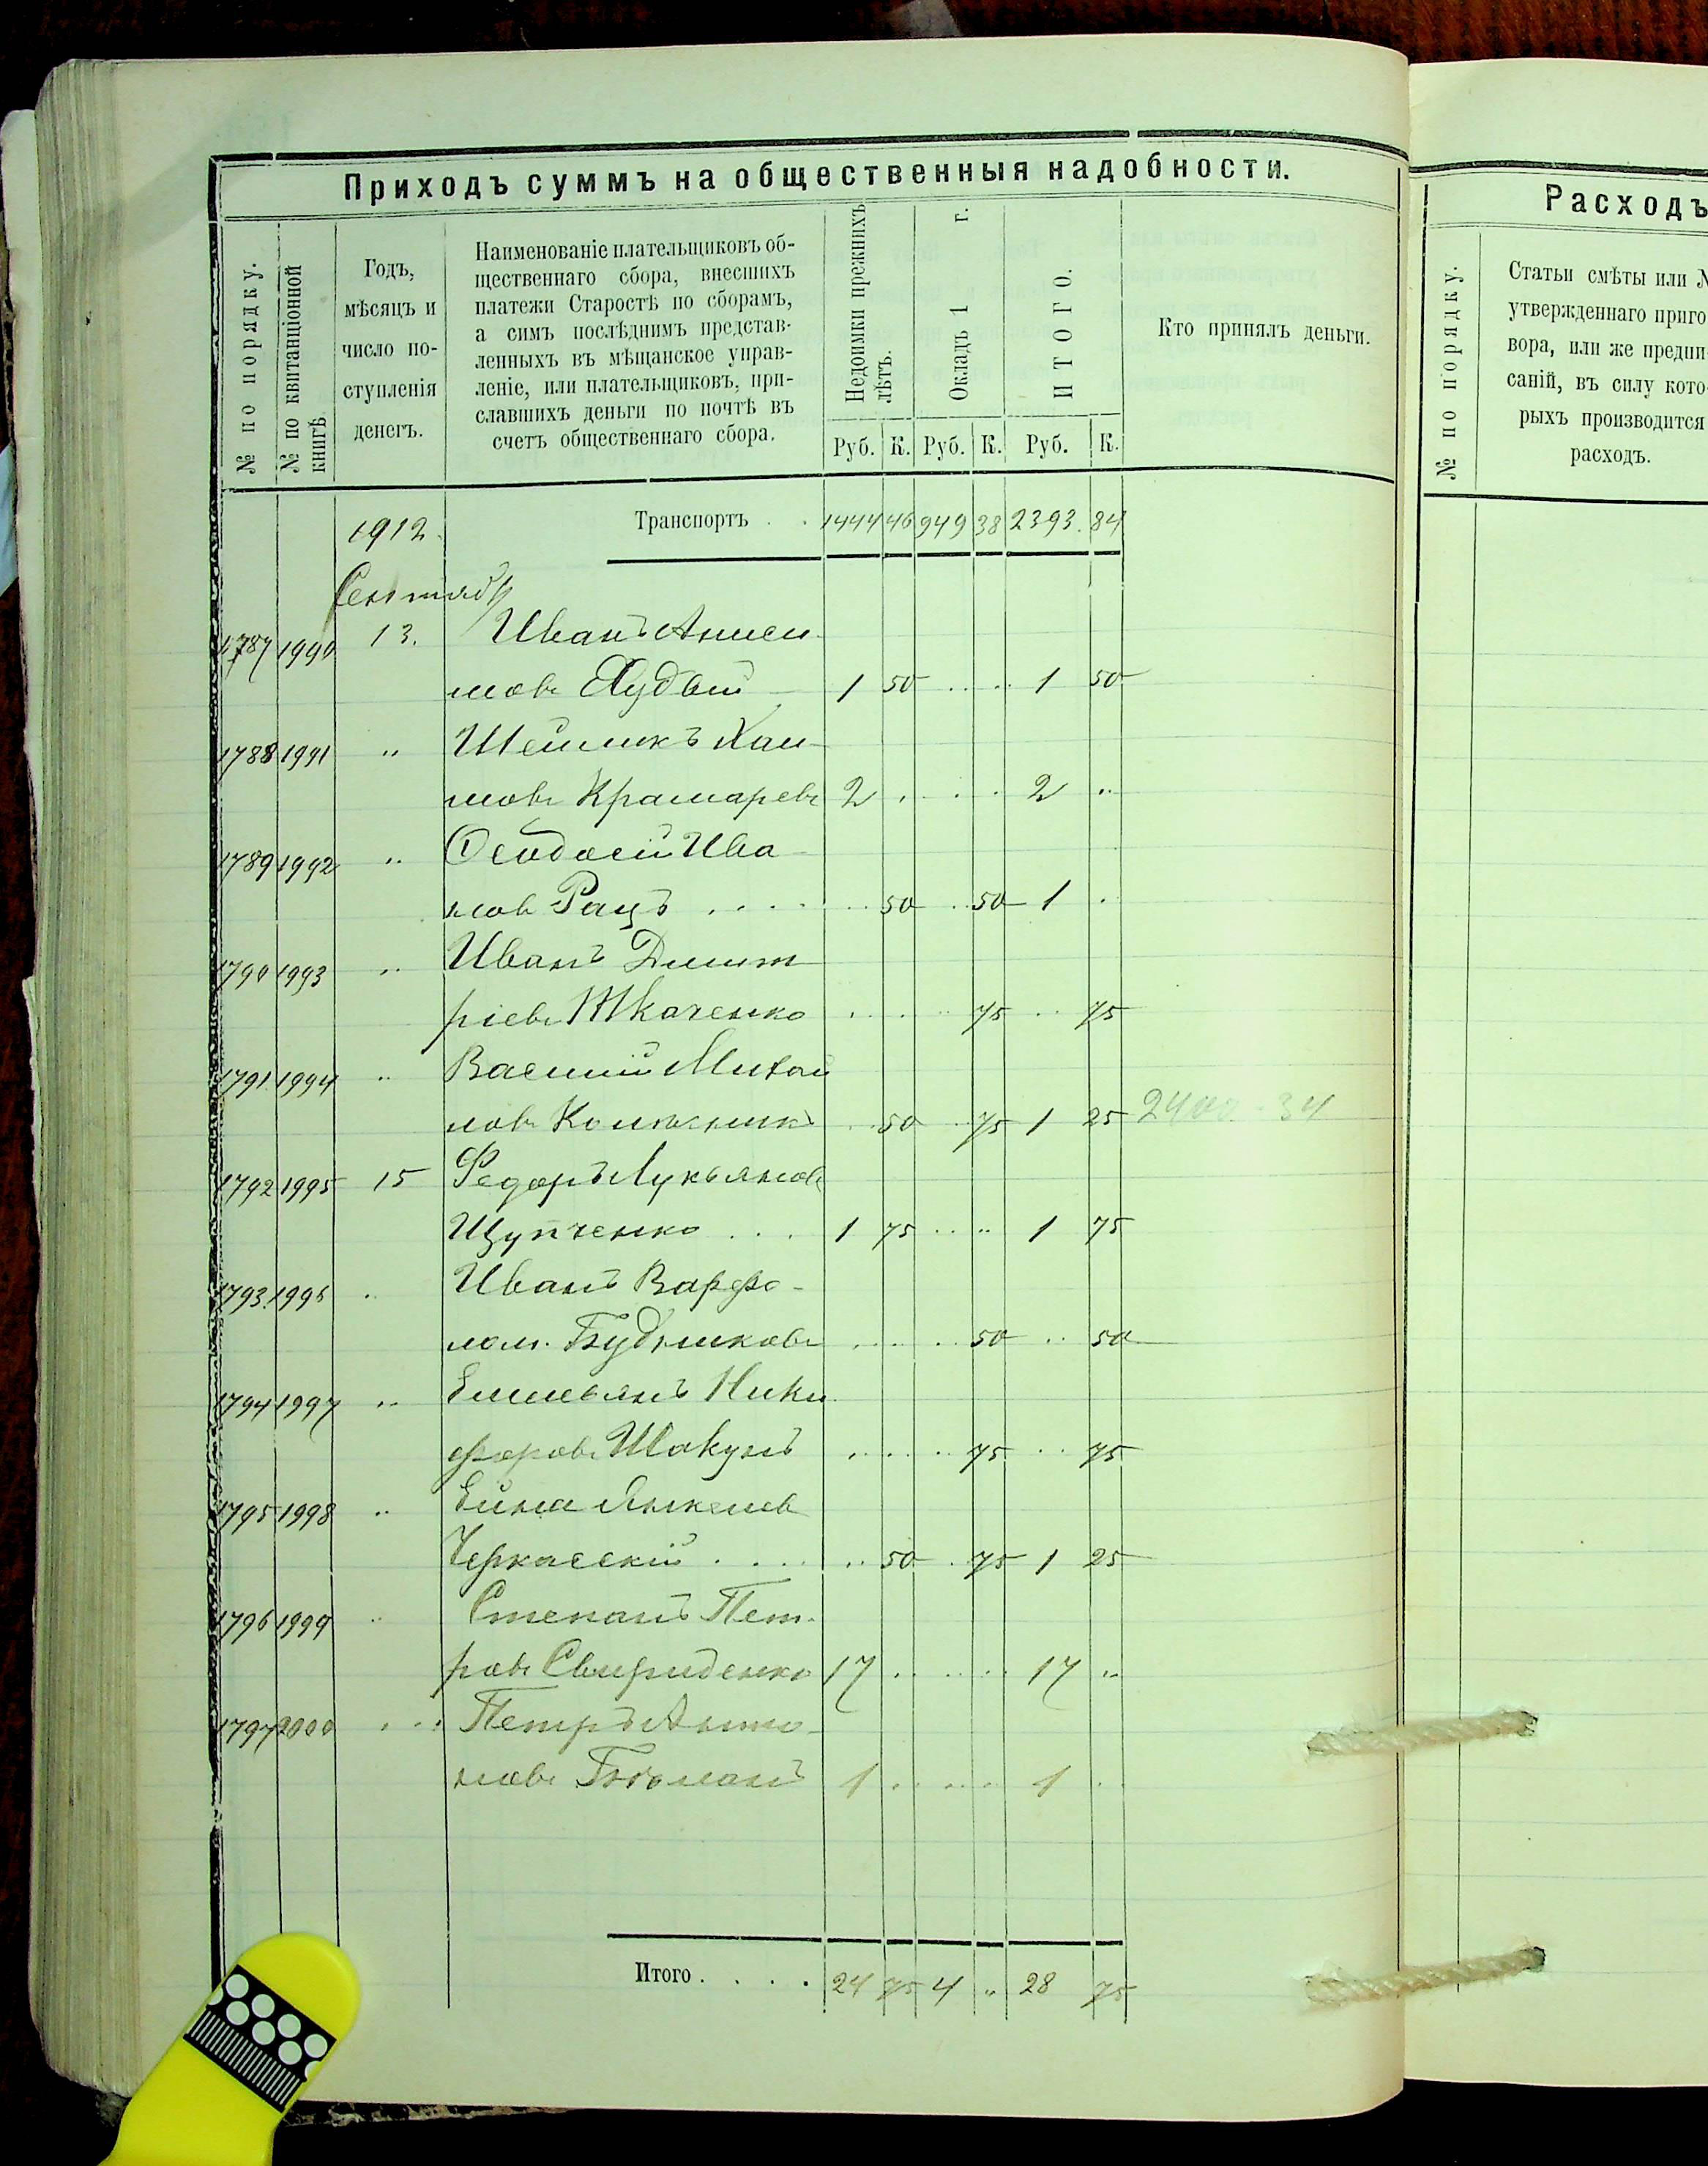 Приходъ суммъ на общественныя надобности.
№ по порядку.
№ по квитанціонной
книгѣ.
Годъ,
мѣсяцъ и
число по-
ступленія
денегъ.
Наименованіе плательщиковъ об-
щественнаго сбора, внесшихъ
платежи Старостѣ по сборамъ,
а симъ послѣднимъ представ-
ленныхъ въ мѣщанское управ-
леніе, или плательщиковъ, при-
славшихъ деньги по почтѣ въ
счетъ общественнаго сбора.
Недоимки прежнихъ
лѣтъ.
Окладъ 1 г.
ИТОГО.
Кто принялъ деньги.
Руб. К. Руб. К. Руб. К.
1912. Транспортъ . . 1444 46 949 38 2393. 84
Сентябр
1787 1990 13. Иванъ Аниси-
мовъ Худый 1 50 . . . . 1 50
1788 1991 " Шеиликъ Хаи-
мовъ Крамаревъ 2 . . . . 2 "
1789 1992 " Ѳеодосій Ива-
новъ Рацъ . . . . . . 50 . . 50 1 .
1790 1993 " Иванъ Димит
ріевъ Ткаченко . . . . . 75 . . 75
1791. 1994 " Василій Михаи
ловъ . . 50 75 1 25 2400 - 34
1792 1995 15 Федоръ Лукьяновъ
Щупченко . . . 1 75 . . " 1 75
1793. 1996 " Иванъ Варфо-
лом. Будниковъ . . . . 50 . . 50
1794 1997 " Емильянъ Ники
форовъ Шакунъ . . . . . 75 . . 75
1795 1998 " Ейна Янкелев
Черкасскій . . . . . . 50 . 75 1 25
1796 1999 " Степанъ Пет-
ровъ Свириденко 17 . . . . . 17 "
1797 2000 . . . Петръ Анто-
новъ 1 . . . . . 1 . .
Итого . . . . 24 75 4 " 28 75
Расходъ
№ по порядку.
Статьи смѣты или №
утвержденнаго приго
вора, или же предпи
саній, въ силу кото
рыхъ производится
расходъ.